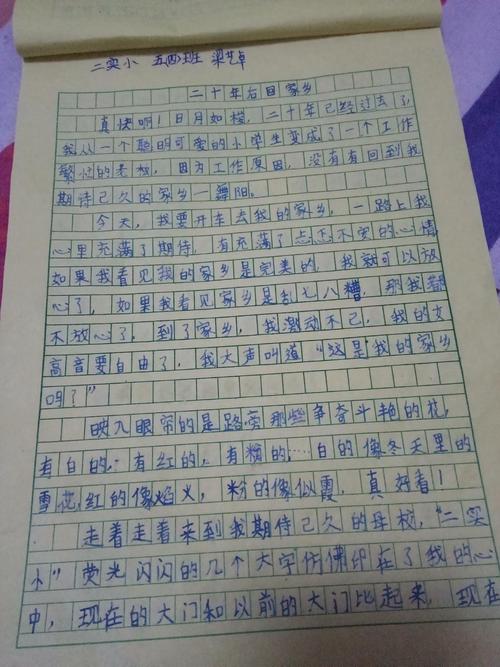 二实小 五四班 梁艺卓
二十年后回家乡
真快啊！日月如梭，二十年已经过去了，
我从一个聪明可爱的小学生变成了一个工作
繁忙的老板，因为工作原因，没有有回到我
期待已久的家乡一舞阳。
今天，我要开车去我的家乡，一路上我
心里充满了期待，有充满了忐忑不安的心情
如果我看见我的家乡是完美的，我就可以放
心了，如果我看见家乡是乱七八糟，那我若
不放心了，到了家乡，我激动不已，我的女
高音要自由了，我大声叫道“这是我的家乡
吗？”
映入眼帘的是路旁那些争奇斗艳的花，
有白的：有红的，有粉的……白的像冬天里的
雪花，红的像焰火，粉的像似霞，真好看！
走着走着来到我期待已久的母校，“二实
小”荧光闪闪的几个大字仿佛印在了我的心
中，现在的大门和以前的大门比起来，现在